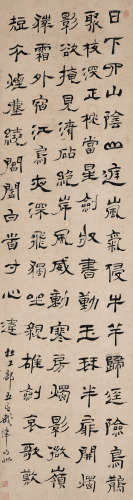 日下四山陰山庭嵐氣侵牛羊歸徑險鳥雀
聚枝深正枕當星劍收書動玉琴半扉開燭影
欲掩見清砧絕岸風威動寒房燭影微嶺
猿霜外宿江鳥夜深飛獨坐親雄劍哀歌歎
短衣煙塵繞閶闔白首壯心違
杜工部五言